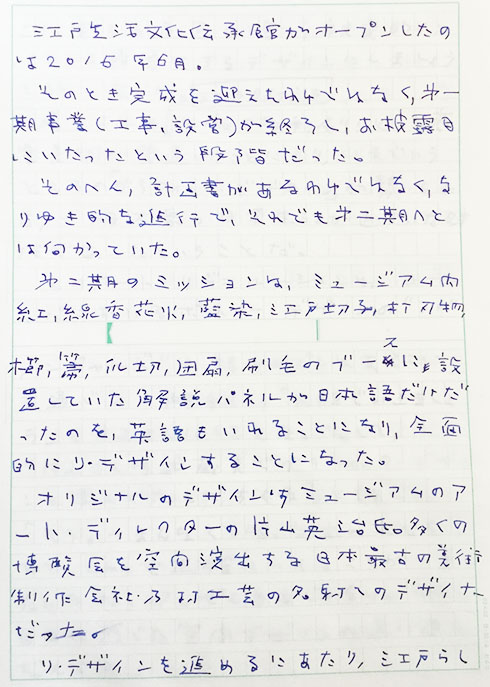 江戸生活文化伝承館がオープンしたの
は2015年6月。
そのとき完成を迎えたわけではなく,第一
期事業(工事,設営)が終了し,お披露目
にいたったという段階だった。
そのへん,計画書があるわけではなく,な
りゆき的な進行で,それでも第二期へと
は向かっていた。
第二期のミッションは,ミュージアム内
紅,線香花火,藍染,江戸切子,打刃物
櫛,箒,爪切,団扇,刷毛のブースに設
置していた解説パネルが日本語だけだ
ったのを,英語もいれることになり,全面
的にリ・デザインすることになった。
オリジナルのデザインはミュージアムのア
ート・ディレクターの片山英治氏。多くの
博覧会を空間演出する日本最古の美術
制作会社・乃村工芸の名うてのデザイナー
だった。
リ・デザインを進めるにあたり,江戸らし